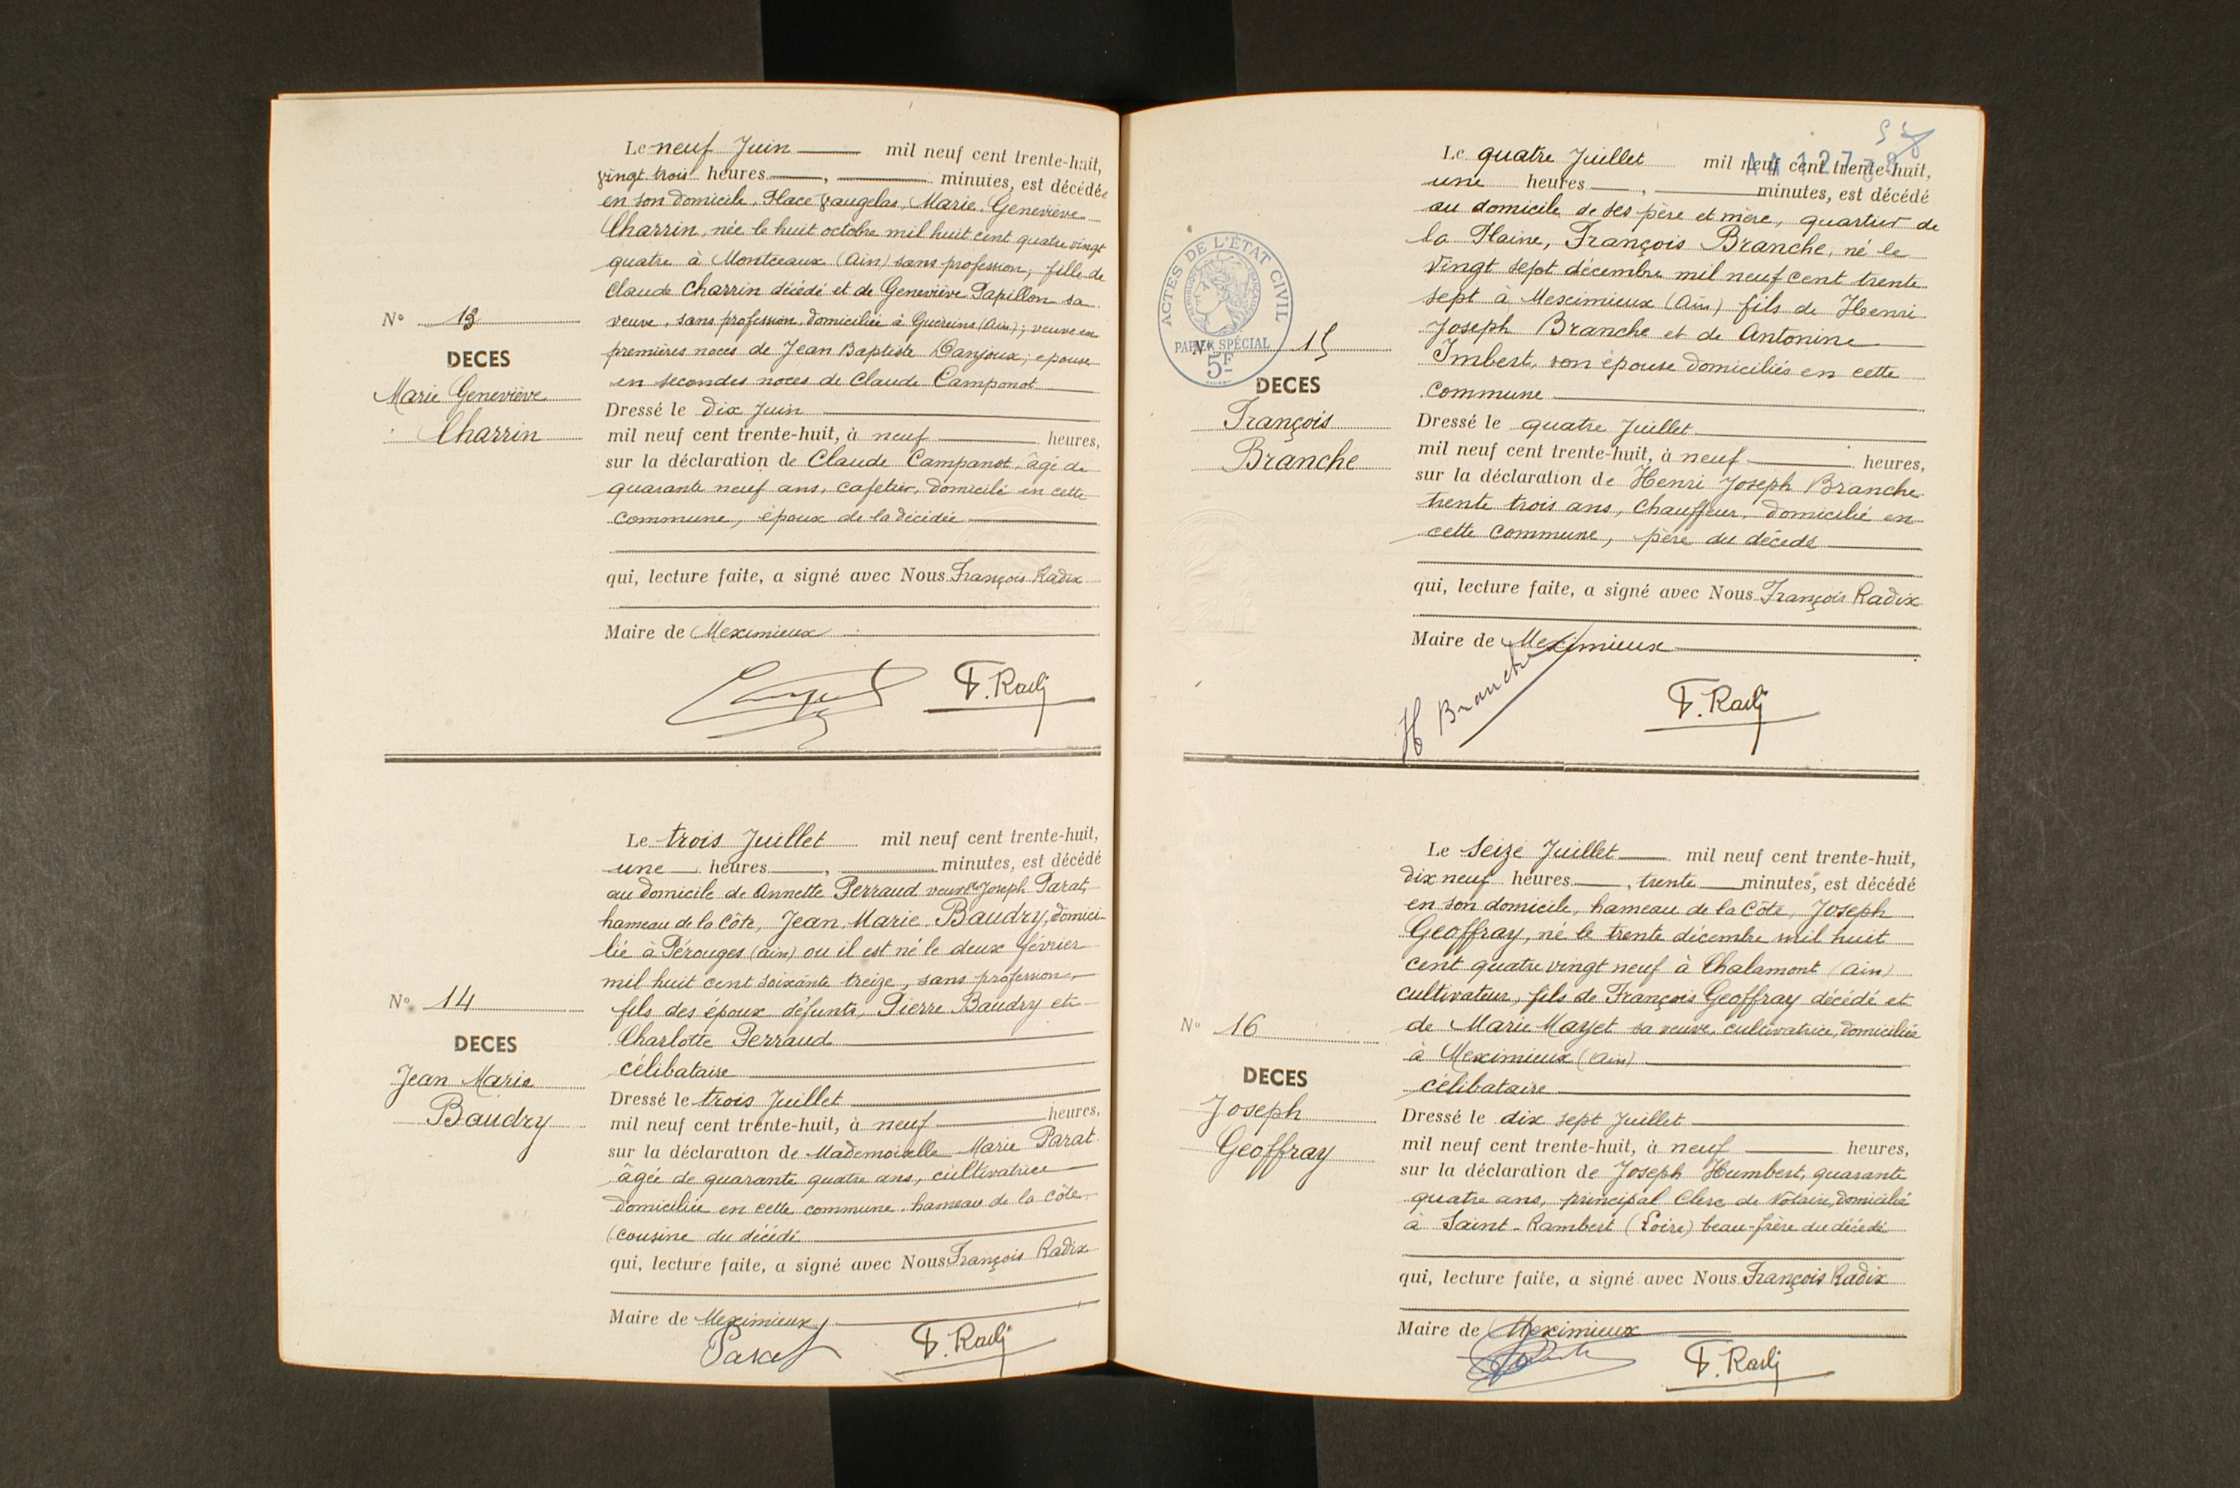 Le neuf Juin mil neuf cent trente-huit,
vingt trois heures, minutes, est décédée
en son domicile, Place Vaugelas, Marie Geneviève
Charrin, née le huit octobre mil huit cent quatre vingt
quatre à Montceaux (Ain) sans profession, fille de
Claude Charrin décédé et de Geneviève Papillon sa
veuve, sans profession, domiciliée à Guéreins (Ain); veuve en
premières noces de Jean Baptiste Danjoux; épouse
en secondes noces de Claude Camponot
N° 13
DECES
Marie Geneviève
Charrin
Dressé le dix Juin
mil neuf cent trente-huit, à neuf heures,
sur la déclaration de Claude Campanot, âgé de
quarante neuf ans, cafetier, domicilié en cette
commune, époux de la décédée
qui, lecture faite, a signé avec Nous François Radix
Maire de Meximieux
F. Radix
Le trois Juillet mil neuf cent trente-huit,
une heures, minutes, est décédé
au domicile de Annette Perraud veuve Joseph Parat,
hameau de la Côte, Jean Marie Baudry, domici-
lié à Pérouges (Ain) ou il est né le deux février
mil huit cent soixante treize, sans profession,
fils des époux défunts, Pierre Baudry et
Charlotte Perraud
célibataire
N° 14
DECES
Jean Marie
Baudry
Dressé le trois Juillet
mil neuf cent trente-huit, à neuf heures,
sur la déclaration de Mademoiselle Marie Parat
âgée de quarante quatre ans, cultivatrice
domiciliée en cette commune, hameau de la Côte
cousine du décédé
qui, lecture faite, a signé avec Nous François Radix
Maire de Meximieux
Parat F. Radix
Le quatre Juillet mil neuf cent trente-huit,
une heures, minutes, est décédé
au domicile de ses père et mère, quartier de
la Plaine, François Branche, né le
vingt sept décembre mil neuf cent trente
sept à Meximieux (Ain) fils de Henri
Joseph Branche et de Antonine
Imbert, son épouse domiciliés en cette
commune
ACTES DE L'ÉTAT CIVIL
PAPIER SPÉCIAL
5F
N° 15
DECES
François
Branche
Dressé le quatre Juillet
mil neuf cent trente-huit, à neuf heures,
sur la déclaration de Henri Joseph Branche
trente trois ans, chauffeur, domicilié en
cette commune, père du décédé
qui, lecture faite, a signé avec Nous François Radix
Maire de Meximieux
H Branche F. Radix
Le seize Juillet mil neuf cent trente-huit,
dix neuf heures, trente minutes, est décédé
en son domicile, hameau de la Côte, Joseph
Geoffray, né le trente décembre mil huit
cent quatre vingt neuf à Chalamont (Ain)
cultivateur, fils de François Geoffray décédé et
de Marie Mayet sa veuve, cultivatrice, domiciliée
à Meximieux (Ain)
célibataire
N° 16
DECES
Joseph
Geoffray
Dressé le dix sept Juillet
mil neuf cent trente-huit, à neuf heures,
sur la déclaration de Joseph Humbert, quarante
quatre ans, principal clerc de Notaire, domicilié
à Saint-Rambert (Loire) beau-frère du décédé
qui, lecture faite, a signé avec Nous François Radix
Maire de Meximieux
F. Radix